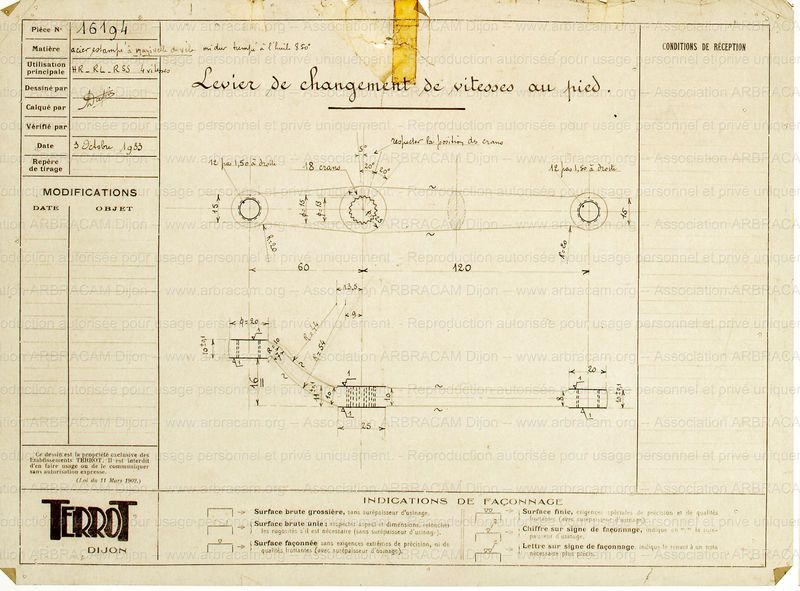 Pièce N° 16194
Matière acier estampé à
Utilisation principale HR_RL_RSS 4 vitesses
Dessiné par
Calqué par
Vérifié par
Date 3 Octobre 1933
Repère de tirage
MODIFICATIONS
DATE OBJET
Levier de changement de vitesses au pied.
CONDITIONS DE RÉCEPTION
respecter la position des crans
12 pas 1,50 à droite
18 crans
5°
20°
20°
12 pas 1,50 à droite
15
15
R=20
R=20
60
120
13,5
9
φ=20
16
25
20
10
8
Ce dessin est la propriété exclusive des
Etablissements TERROT. Il est interdit
d'en faire usage ou de le communiquer
sans autorisation expresse.
(Loi du 11 Mars 1902.)
TERROT
DIJON
INDICATIONS DE FAÇONNAGE
Surface brute grossière, sans surépaisseur d'usinage.
Surface brute unie; respecter aspect et dimensions, retouches
les rugosités s'il est nécessaire (sans surépaisseur d'usinage).
Surface façonnée sans exigences extrêmes de précision, ni de
qualités frottantes (avec surépaisseur d'usinage).
Surface finie, exigences spéciales de précision et de qualités
frottantes (avec surépaisseur d'usinage).
Chiffre sur signe de façonnage, indique en
Lettre sur signe de façonnage, indique le renvoi à un nota
nécessaire plus précis.
www.arbracam.org -- Association ARBRACAM Dijon -- www.arbracam.org
Reproduction autorisée pour usage personnel et privé uniquement.